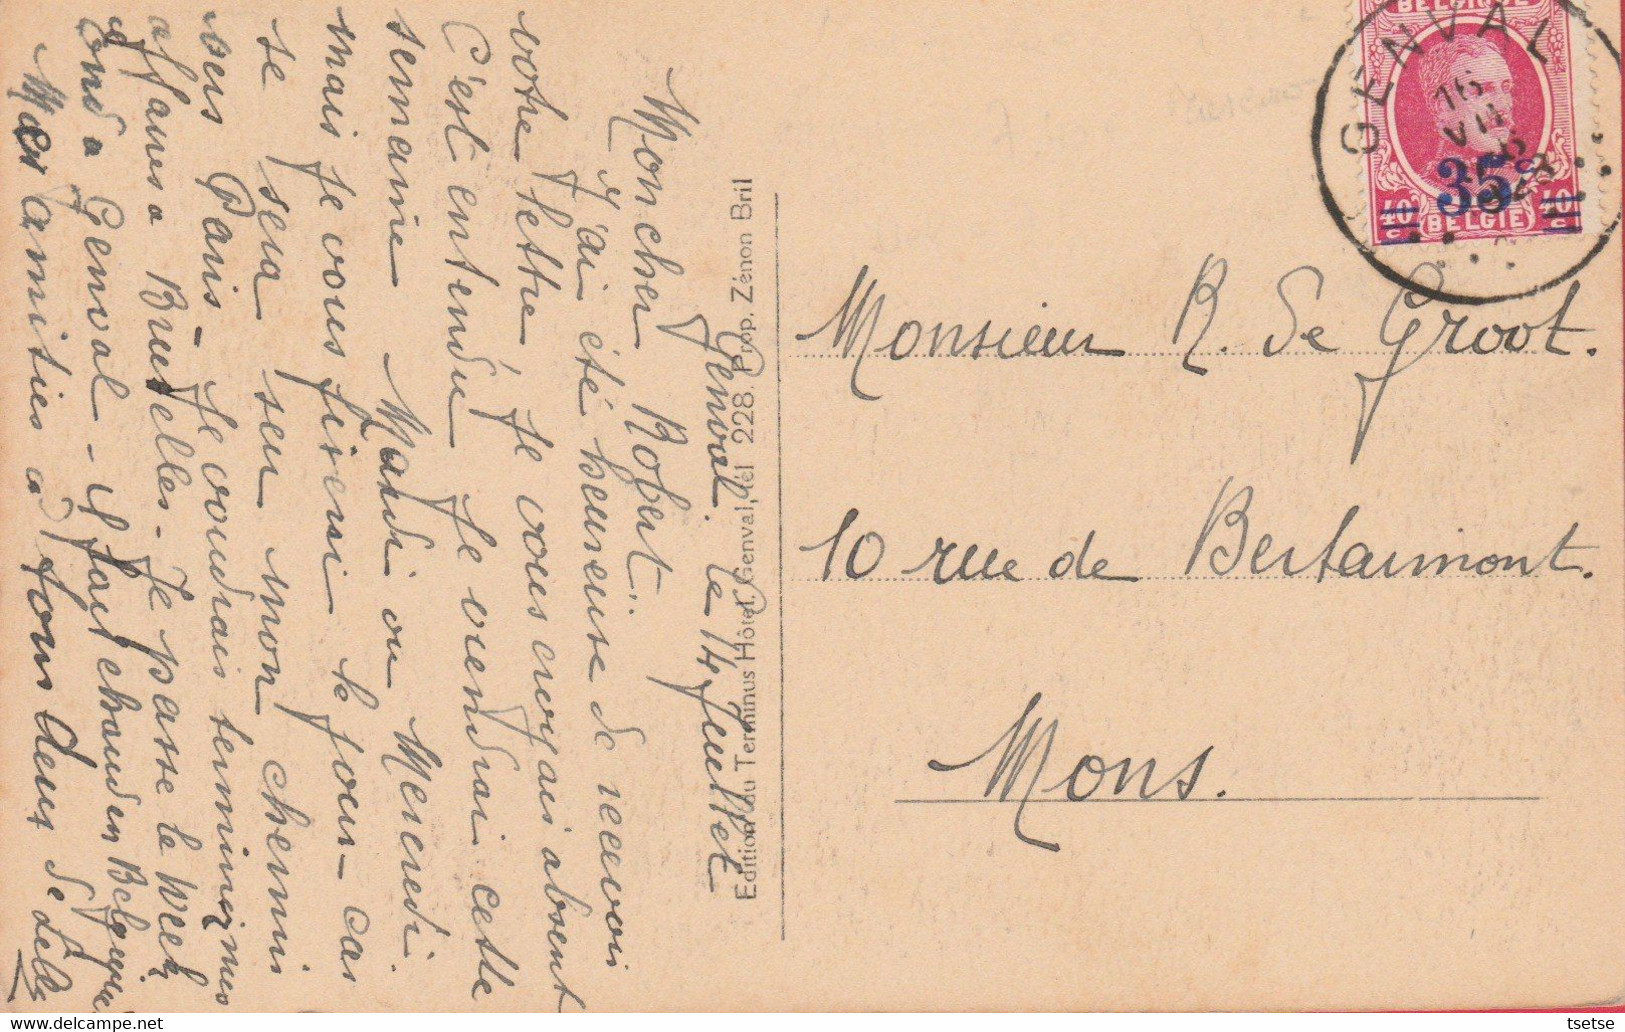 Genval. le 14 Juillet
Mon cher Robert.
J'ai été heureuse de recevoir
votre lettre, je vous croyais absent
C'est entendu je viendrai cette
semaine Mardi ou Mercredi
mais je vous fixerai le jour - car
se sera seu mon chemin
vers Paris. Je voudrais terminer mes
affaires a Bruxelles. Je passe le week
end a Genval - Il fait chaud en Belgique
Mes amitiés à tous deux de Lille
Edition du Terminus Hôtel, Genval, tél 228. Prop. Zénon Bril
BELGIQUE
GENVAL
16
VII
35c
40 c
40 c
BELGIE
Monsieur R. de Groot.
10 rue de Bertaimont.
Mons.
tsetse